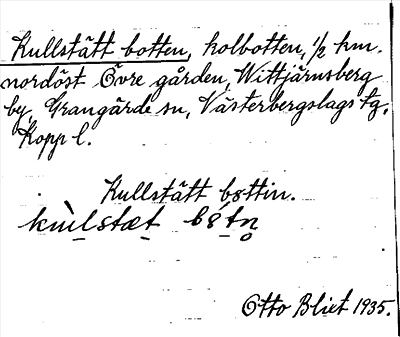 Kullstätt botten, kolbotten, 1/2 km.
nordöst Övre gården, Wittjärnsberg
by, Grangärde sn, Västerbergslags tg,
Kopp l.
Kullstätt bøttin.
Otto Blixt 1935.